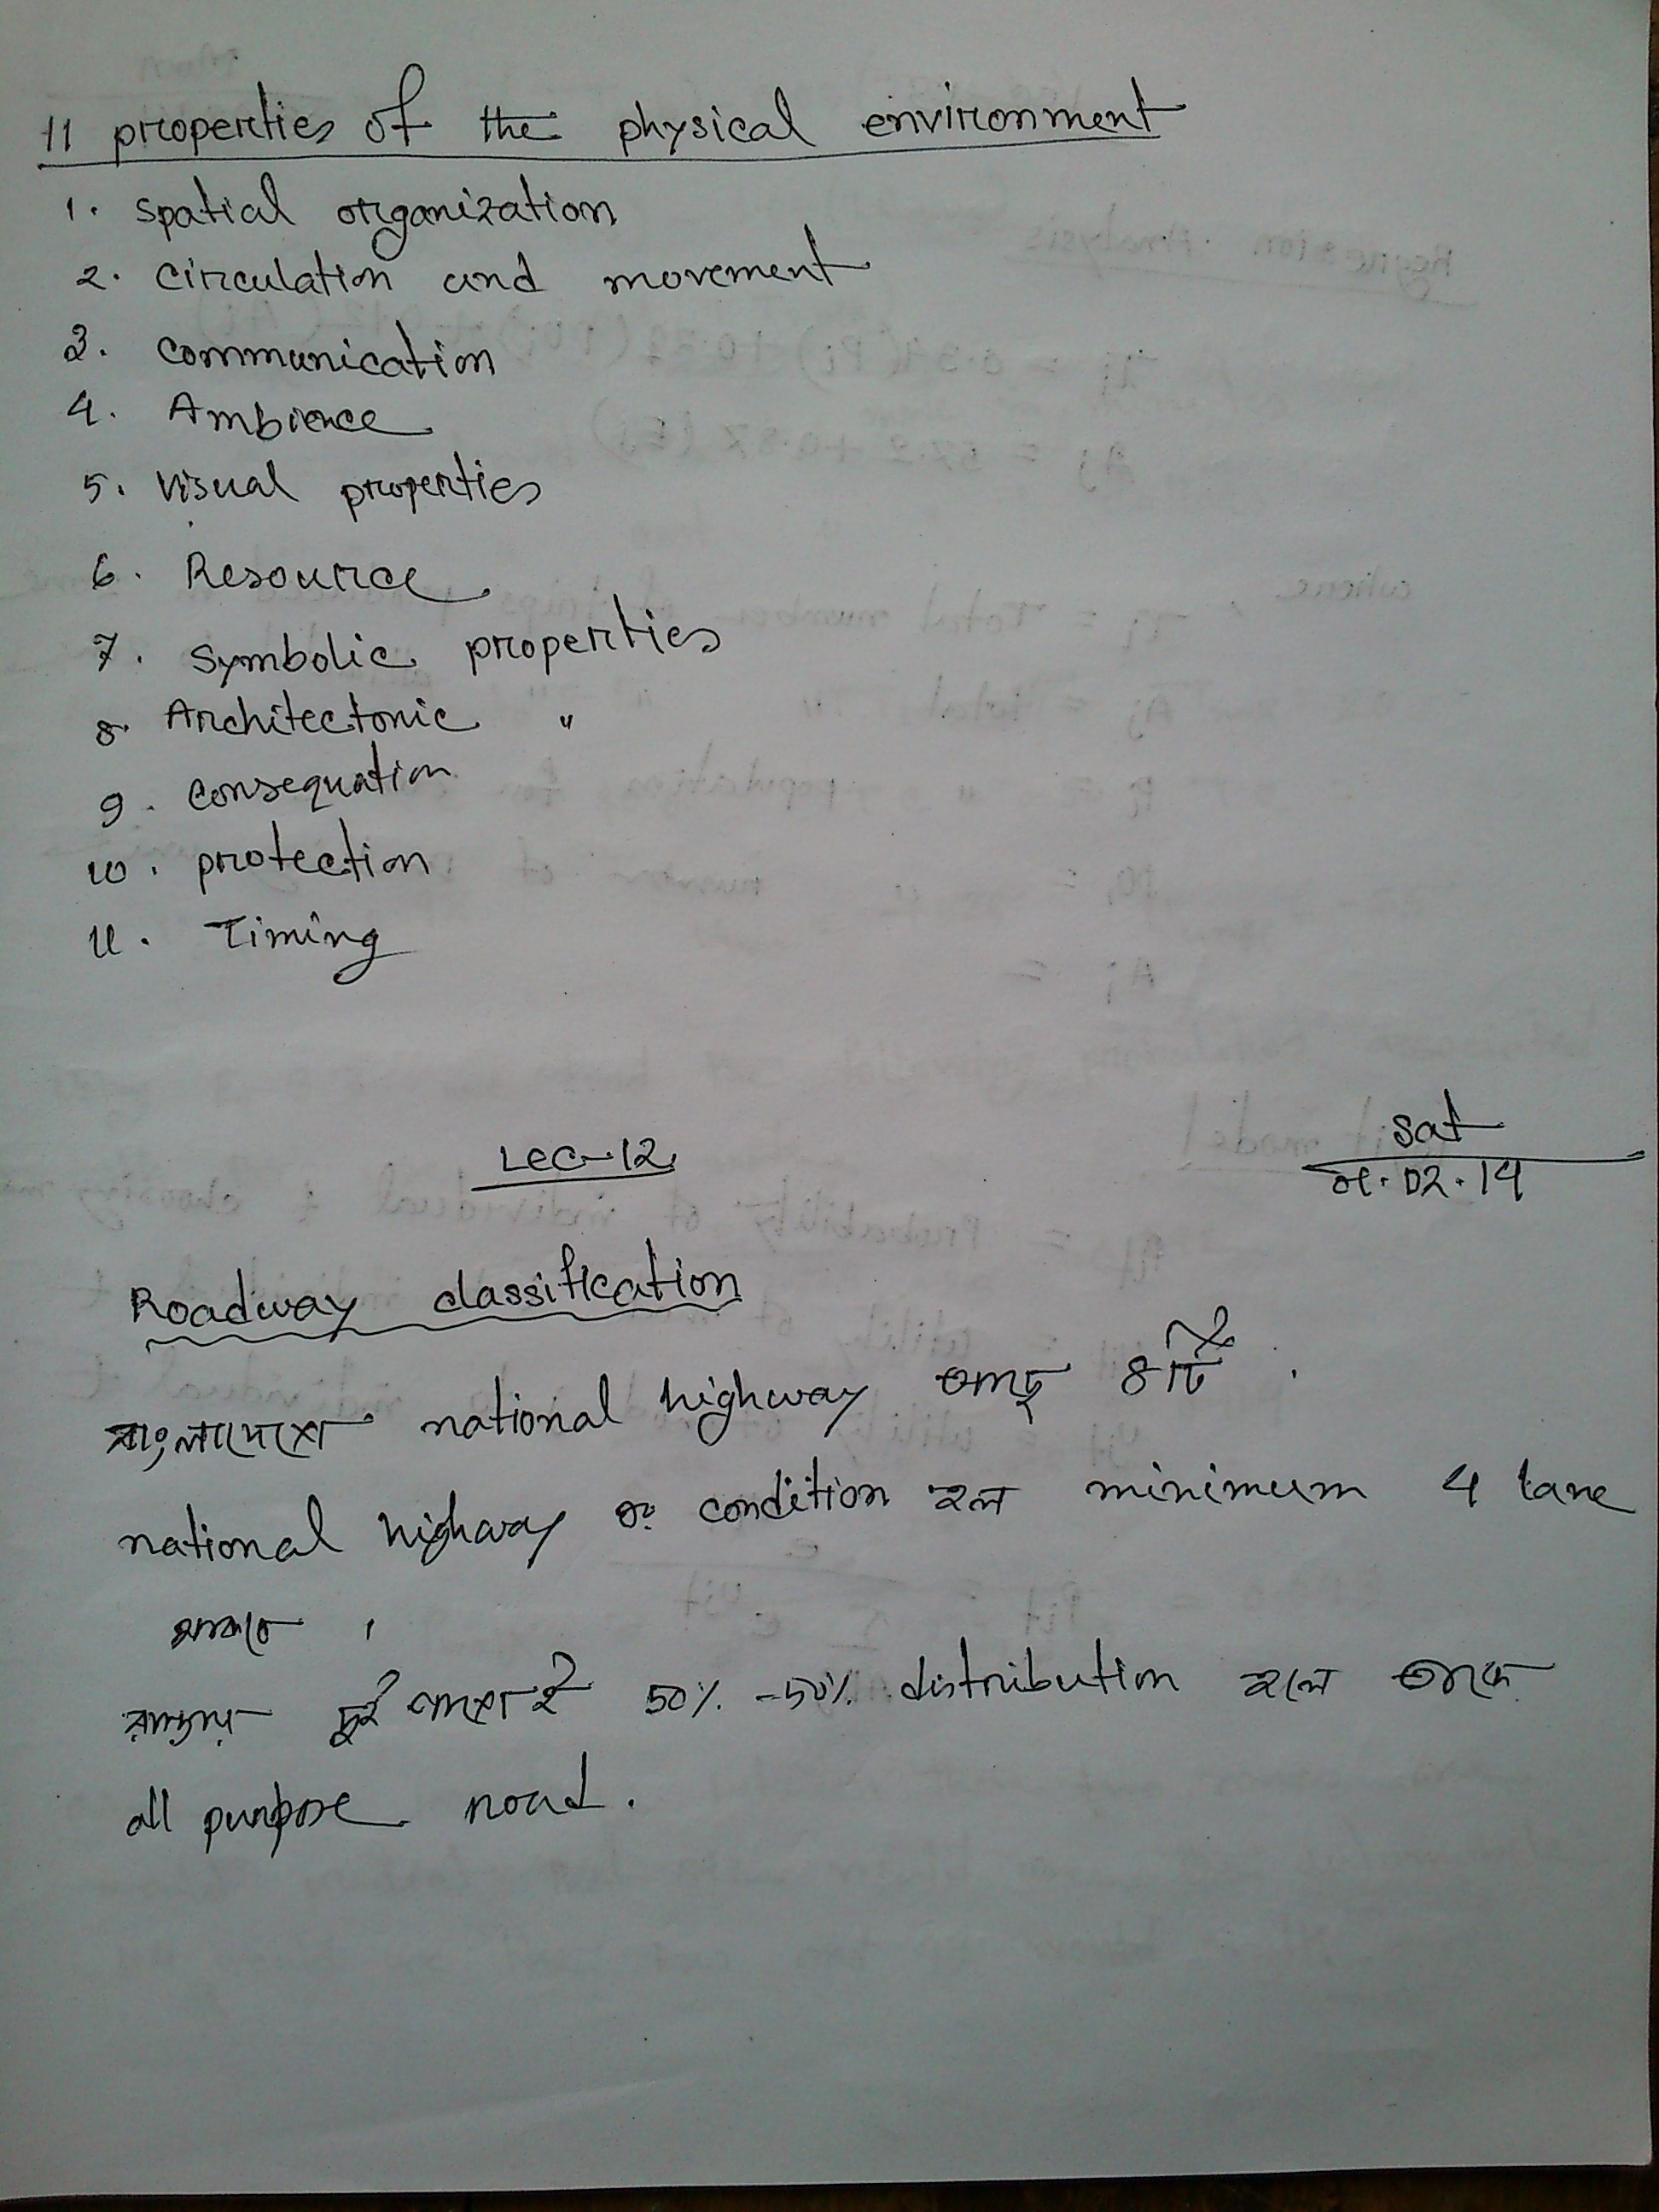 11 properties of the physical environment
1. spatial organization
2. circulation and movement
3. communication
4. Ambience
5. visual properties
6. Resource
7. symbolic properties
8. Architectonic "
9. consequation
10. protection
11. Timing
Lec-12
sat
02.14
Roadway classification
বাংলাদেশে national highway আছে ৪টি
national highway এর condition হল minimum 4 lane
থাকবে ।
রাস্তার দুই পাশেই 50% -50% distribution হলে তাকে
all purpose road.